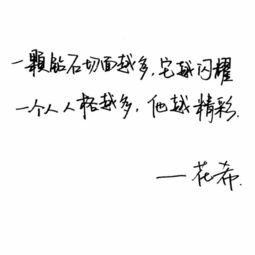 一颗钻石切面越多,它越闪耀
一个人人格越多,他越精彩.
——花希.